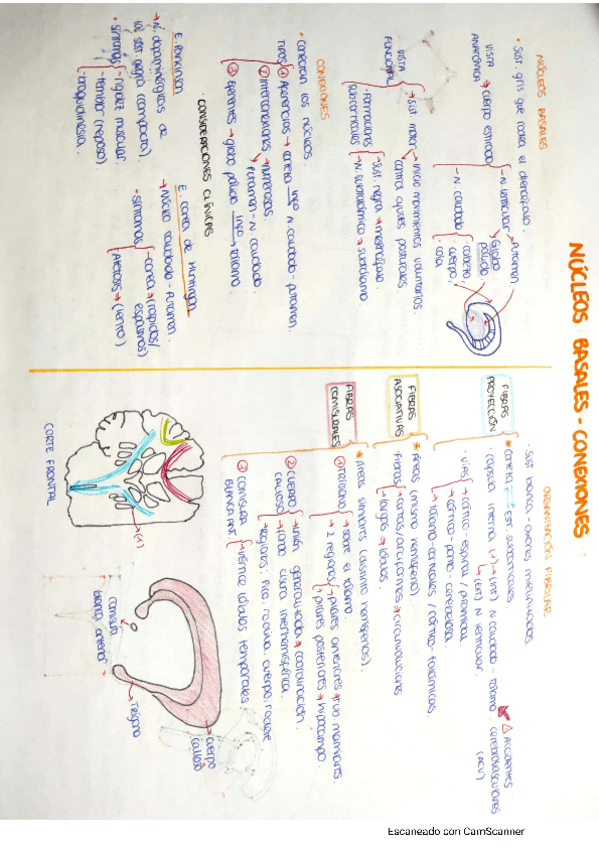 NÚCLEOS BASALES - CONEXIONES
NÚCLEOS BASALES
• Sust. gris que rodea el diencéfalo.
VISTA ANATÓMICA → cuerpo estriado
- N. lenticular
Putamen
Globo pálido
- N. caudado
cabeza
cuerpo
cola
VISTA FUNCIONAL
• Sist. motor
inicio movimientos voluntarios.
control ajustes posturales.
• Formaciones subcorticales
- Sust. negra → mesencéfalo
- N. subtalámico → subtálamo
CONEXIONES
• conectan los núcleos.
TIPOS
① Aferencias → corteza info N. caudado - putamen.
② Interconexiones → numerosas
Putamen - N. caudado
③ Eferentes → globo pálido info tálamo.
• CONSIDERACIONES CLÍNICAS
E. Parkinson
→ N. dopaminérgicas de la sust. negra (compacta).
• síntomas
- rigidez muscular.
- temblor (reposo).
- bradicinesia.
E. corea de Huntington
→ Núcleo caudado - Putamen.
• síntomas
- corea → (rápidos/ espasmos)
Atetosis → (lento)
ORGANIZACIÓN FIBRILAR
• Sust. blanca - axones mielinizados.
FIBRAS PROYECCIÓN
* corteza est. subcorticales.
• cápsula interna (*)
(int) N. caudado - tálamo.
(ext) N. lenticular.
△ Accidentes cerebrovasculares (ACV)
• vías
→ córtico - espinal / piramidal.
→ córtico - ponto - cerebelosa.
→ tálamo - corticales / córtico - talámicas
FIBRAS ASOCIATIVAS
* Áreas (mismo hemisferio).
- Fibras
→ cortas/arciformes → circunvoluciones
→ largas → lóbulos.
FIBRAS COMISURALES
* Áreas similares (distinto hemisferio).
① TRÍGONO
→ sobre el tálamo.
→ 2 regiones
pilares anteriores → tub. mamilares.
pilares posteriores → hipocampo.
② CUERPO CALLOSO
→ unión generalizada → coordinación.
→ fondo cisura interhemisférica.
→ regiones: pico, rodilla, cuerpo, rodete
③ COMISURA BLANCA ANT.
CORTE FRONTAL
(*)
comisura blanca anterior
Trígono
cuerpo calloso
Escaneado con CamScanner